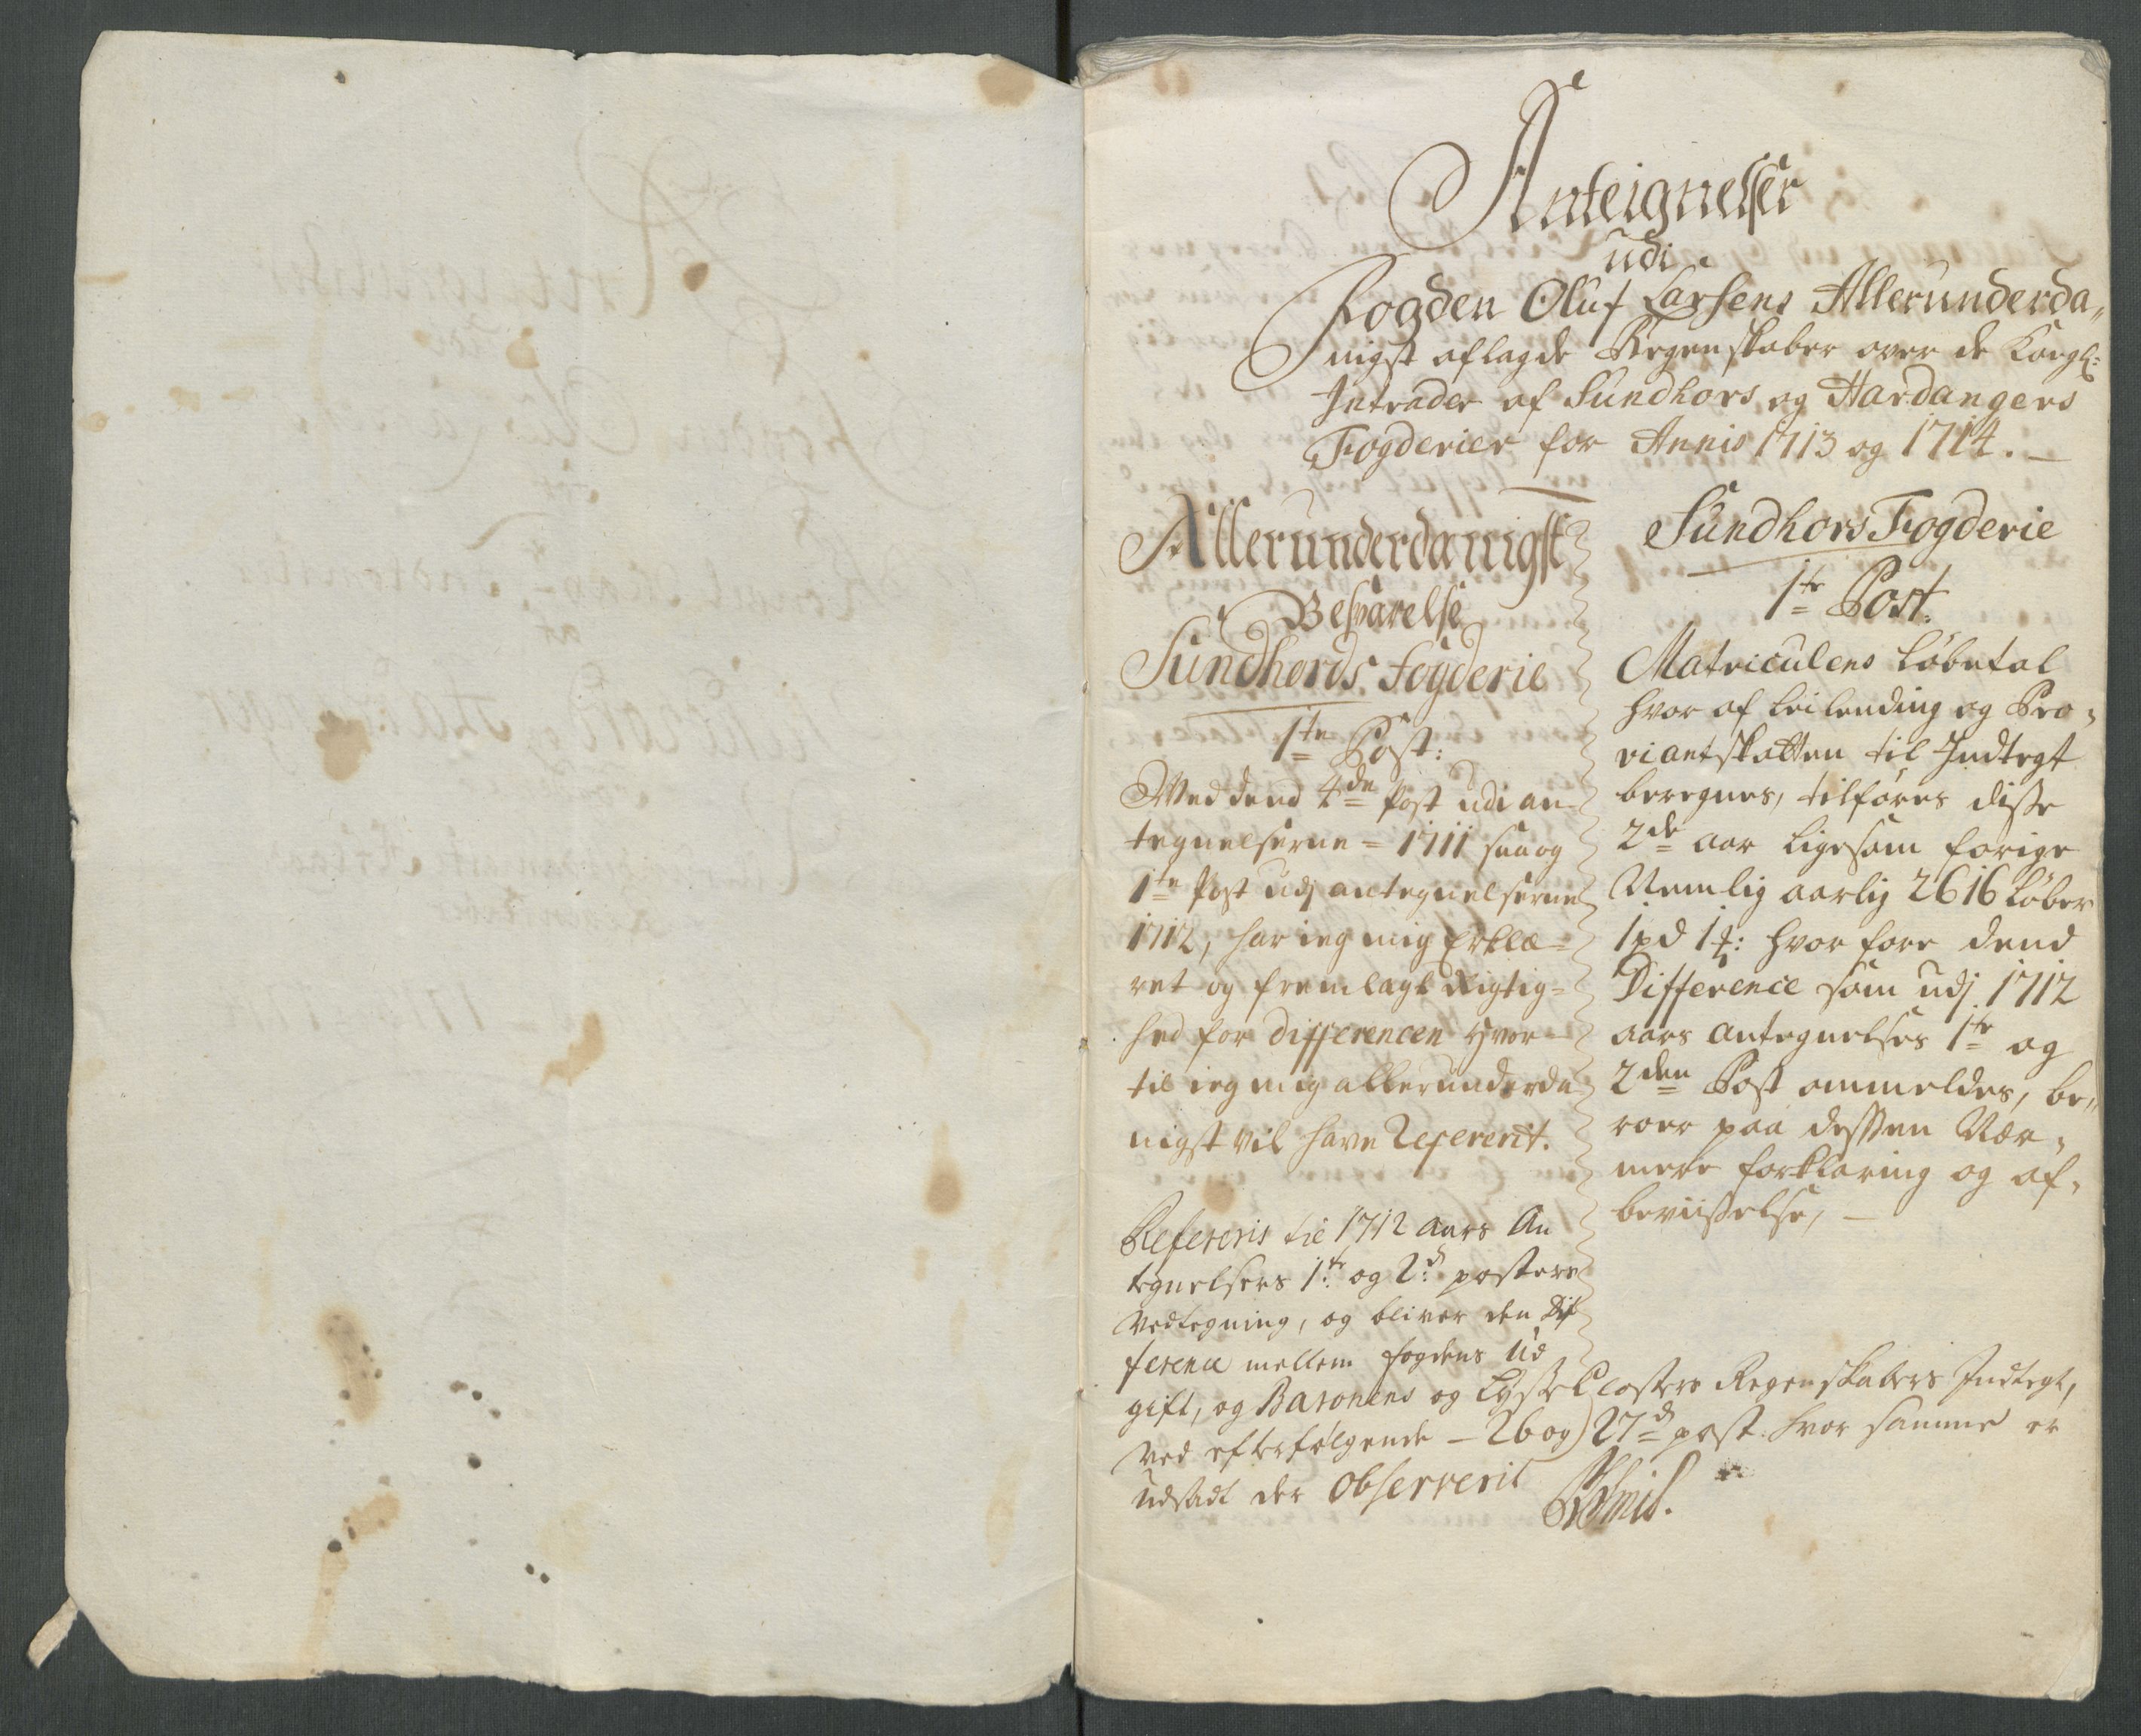 Anteignelser
udi
Fogden Oluf Larsens Allerunderda„
nigst aflagde Regenskaber over de Kongl:
Intrader af Sundhors og Hardangers
Fogderier for Annis 1713 og 1714.
Allerunderdanigst
Besvarelse
Sundhords fogderie
1te Post:
Ved dend 4de Post udi an-
tegnelserne = 1711 saa og
1te Post udj antegnelserne
1712, har ieg mig Erklæ-
ret og fremlagt Rigtig-
hed for differencen hvor-
til ieg mig allerunderda
nigst vil have Refererit.
Refereris til 1712 Aars An
tegnelsers 1te og 2d posters
Vedtegning, og bliver den Dif
ference mellem fogdens Ud
gift, og Baronens og Lyse Closters Regenskabers Indtegt,
Ved efterfølgende - 26 og 27d post hvor samme er
udsadt der Observerit
Sundhors Fogderie
1te Post.
Matriculens Løbetal
hvor af Leilending og Pro-
viantskatten til Indtegt
beregnes, tilføres disse
2de aar ligesom forige
Nemlig aarlig 2616 Løber
1 pd 1 : hvor fore dend
Difference som udj 1712
aars antegnelses 1te og
2den Post ommeldes, be„
roer paa dessen Nær-
mere forklaring og af-
beviiselse,